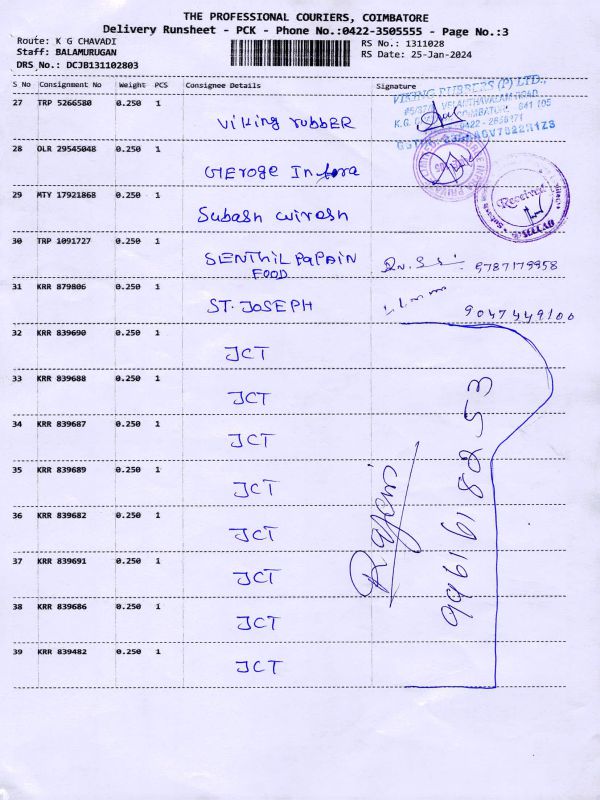 THE PROFESSIONAL COURIERS, COIMBATORE
Delivery Runsheet - PCK - Phone No.:0422-3505555 - Page No.:3
Route: K G CHAVADI
Staff: BALAMURUGAN
DRS No.: DCJB131102803
RS No.: 1311028
RS Date: 25-Jan-2024
S No Consignment No Weight PCS Consignee Details Signature
27 TRP 5266580 0.250 1 Viking rubbER
VIKING RUBBERS (P) LTD.,
28 OLR 29545048 0.250 1 GIEroge Infra
29 MTY 17921868 0.250 1 Subash wirash
Received
30 TRP 1091727 0.250 1 SENTHIL PAPAIN
FOOD
9787179958
31 KRR 879806 0.250 1 ST. JOSEPH
9047449100
32 KRR 839690 0.250 1 JCT
33 KRR 839688 0.250 1 JCT
34 KRR 839687 0.250 1 JCT
35 KRR 839689 0.250 1 JCT
36 KRR 839682 0.250 1 JCT
37 KRR 839691 0.250 1 JCT
38 KRR 839686 0.250 1 JCT
39 KRR 839482 0.250 1 JCT
Rajani
9961618253